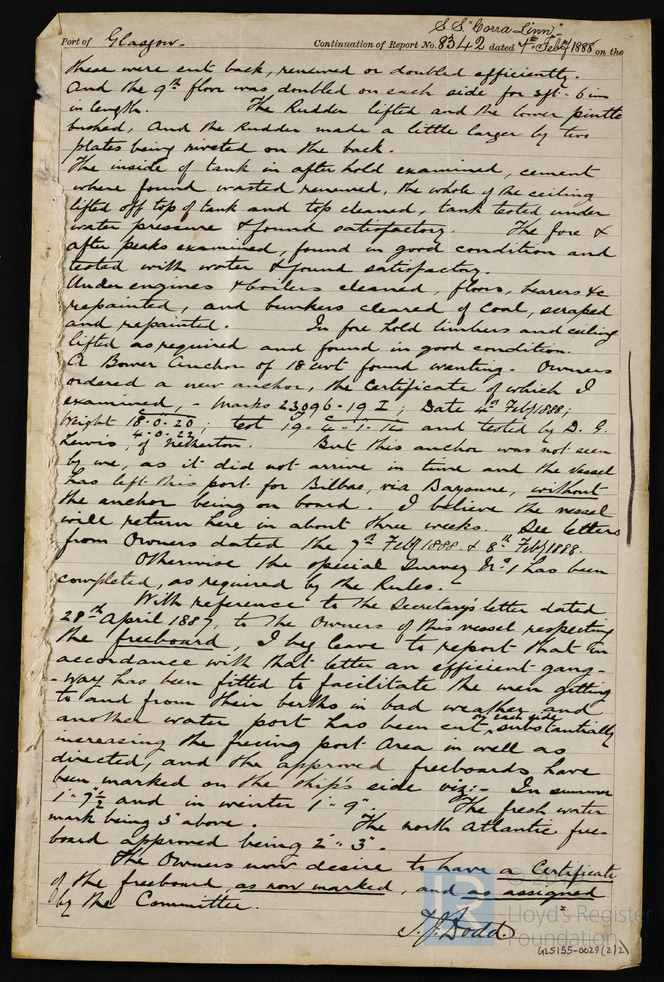 S S "Corra Linn"
Port of Glasgow. Continuation of Report No. 8342 dated 7th Feby 1888 on the
these were cut back, renewed or doubled efficiently.
And the 9th floor was doubled on each side for 3ft - 6 in
in length. The Rudder lifted and the lower pintle
bushed, And the Rudder made a little larger by two
plates being riveted on the back.
The inside of tank in after hold examined, cement
where found wasted renewed, the whole of the ceiling
lifted off top of tank and top cleaned, tank tested under
water pressure & found satisfactory. The fore &
after peaks examined, found in good condition and
tested with water & found satisfactory.
Under engines & boilers cleaned, floors, bearers &c
repainted, and bunkers cleared of coal, scraped
and repainted. In fore hold limbers and ceiling
lifted as required and found in good condition.
A Bower Anchor of 18 cwt found wanting. Owners
ordered a new anchor, the Certificate of which I
examined, - Marks 23096 - 19 I; Date 4th Feby 1888;
Weight 18.0.20; test 19.4.1.14 and tested by D. G.
4.0.22
Lewis, of Netherton. But this anchor was not seen
by me, as it did not arrive in time and the vessel
has left this port for Bilbao, via Bayonne, without
the anchor being on board. I believe the vessel
will return here in about three weeks. See letters
from Owners dated the 7th Feby 1888 & 8th Feby 1888.
Otherwise the special Survey No 1 has been
completed, as required by the Rules.
With reference to the Secretary's letter dated
28th April 1887, to the Owners of this vessel respecting
the freeboard, I beg leave to report that in
accordance with that letter an efficient gang-
-way has been fitted to facilitate the men getting
to and from their berths in bad weather and
another water port has been cut on each side, substantially
increasing the freeing port Area in well as
directed, and the approved freeboards have
been marked on the ship's side viz:- In summer
1" 7½ and in winter 1" 9". The fresh water
mark being 3" above. The north Atlantic free-
board approved being 2" 3".
The Owners now desire to have a Certificate
of the freeboard, as now marked, and as assigned
by the Committee.
T. J. Dodd
LR
© Lloyd's Register
Foundation
GLS155-0029(2/2)